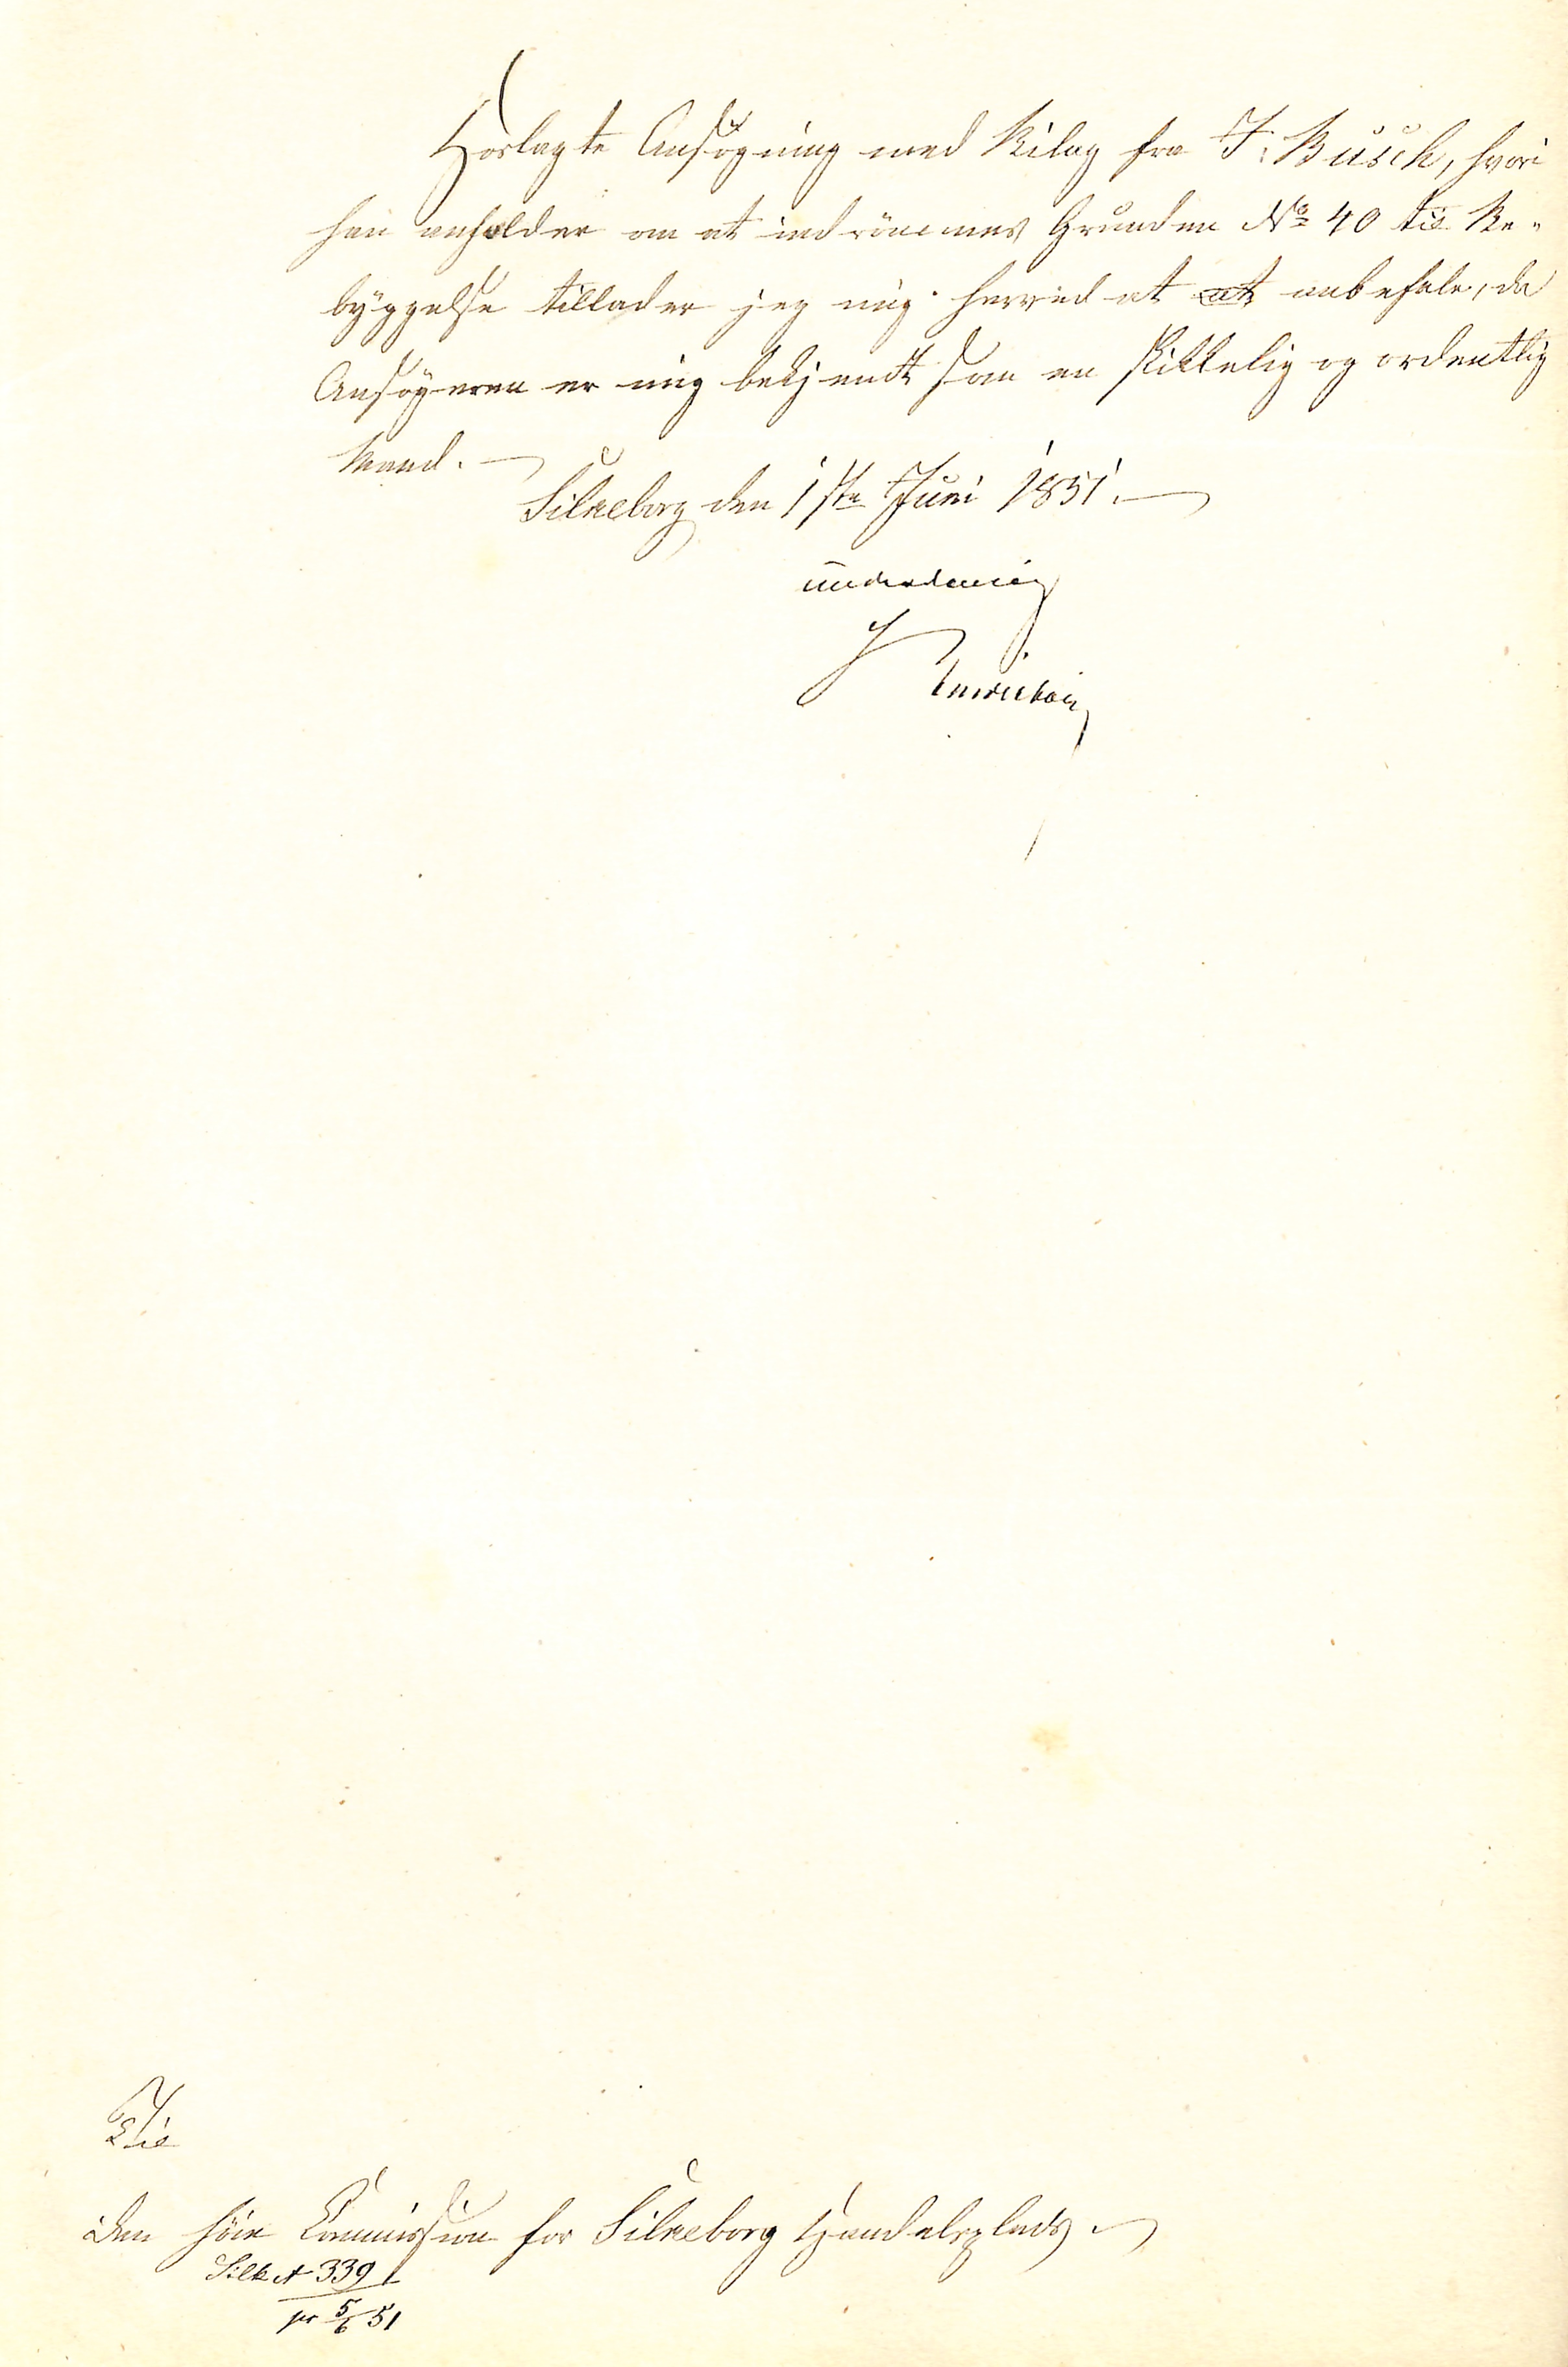 Hoslagte Ansøgning med Bilag fra J. Busch, hvori
han anholder om at indrömmes Grunden No 40 til Be-
byggelse tillader jeg mig herved at at anbefale, da
Ansøgeren er mig bekjendt som en skikkelig og ordentlig
Mand. —
Silkeborg den 1ste Juni 1851. —
underdanig
Til
den höie Commission for Silkeborg Handelsplads.
Silk № 339
pr 5/6 51